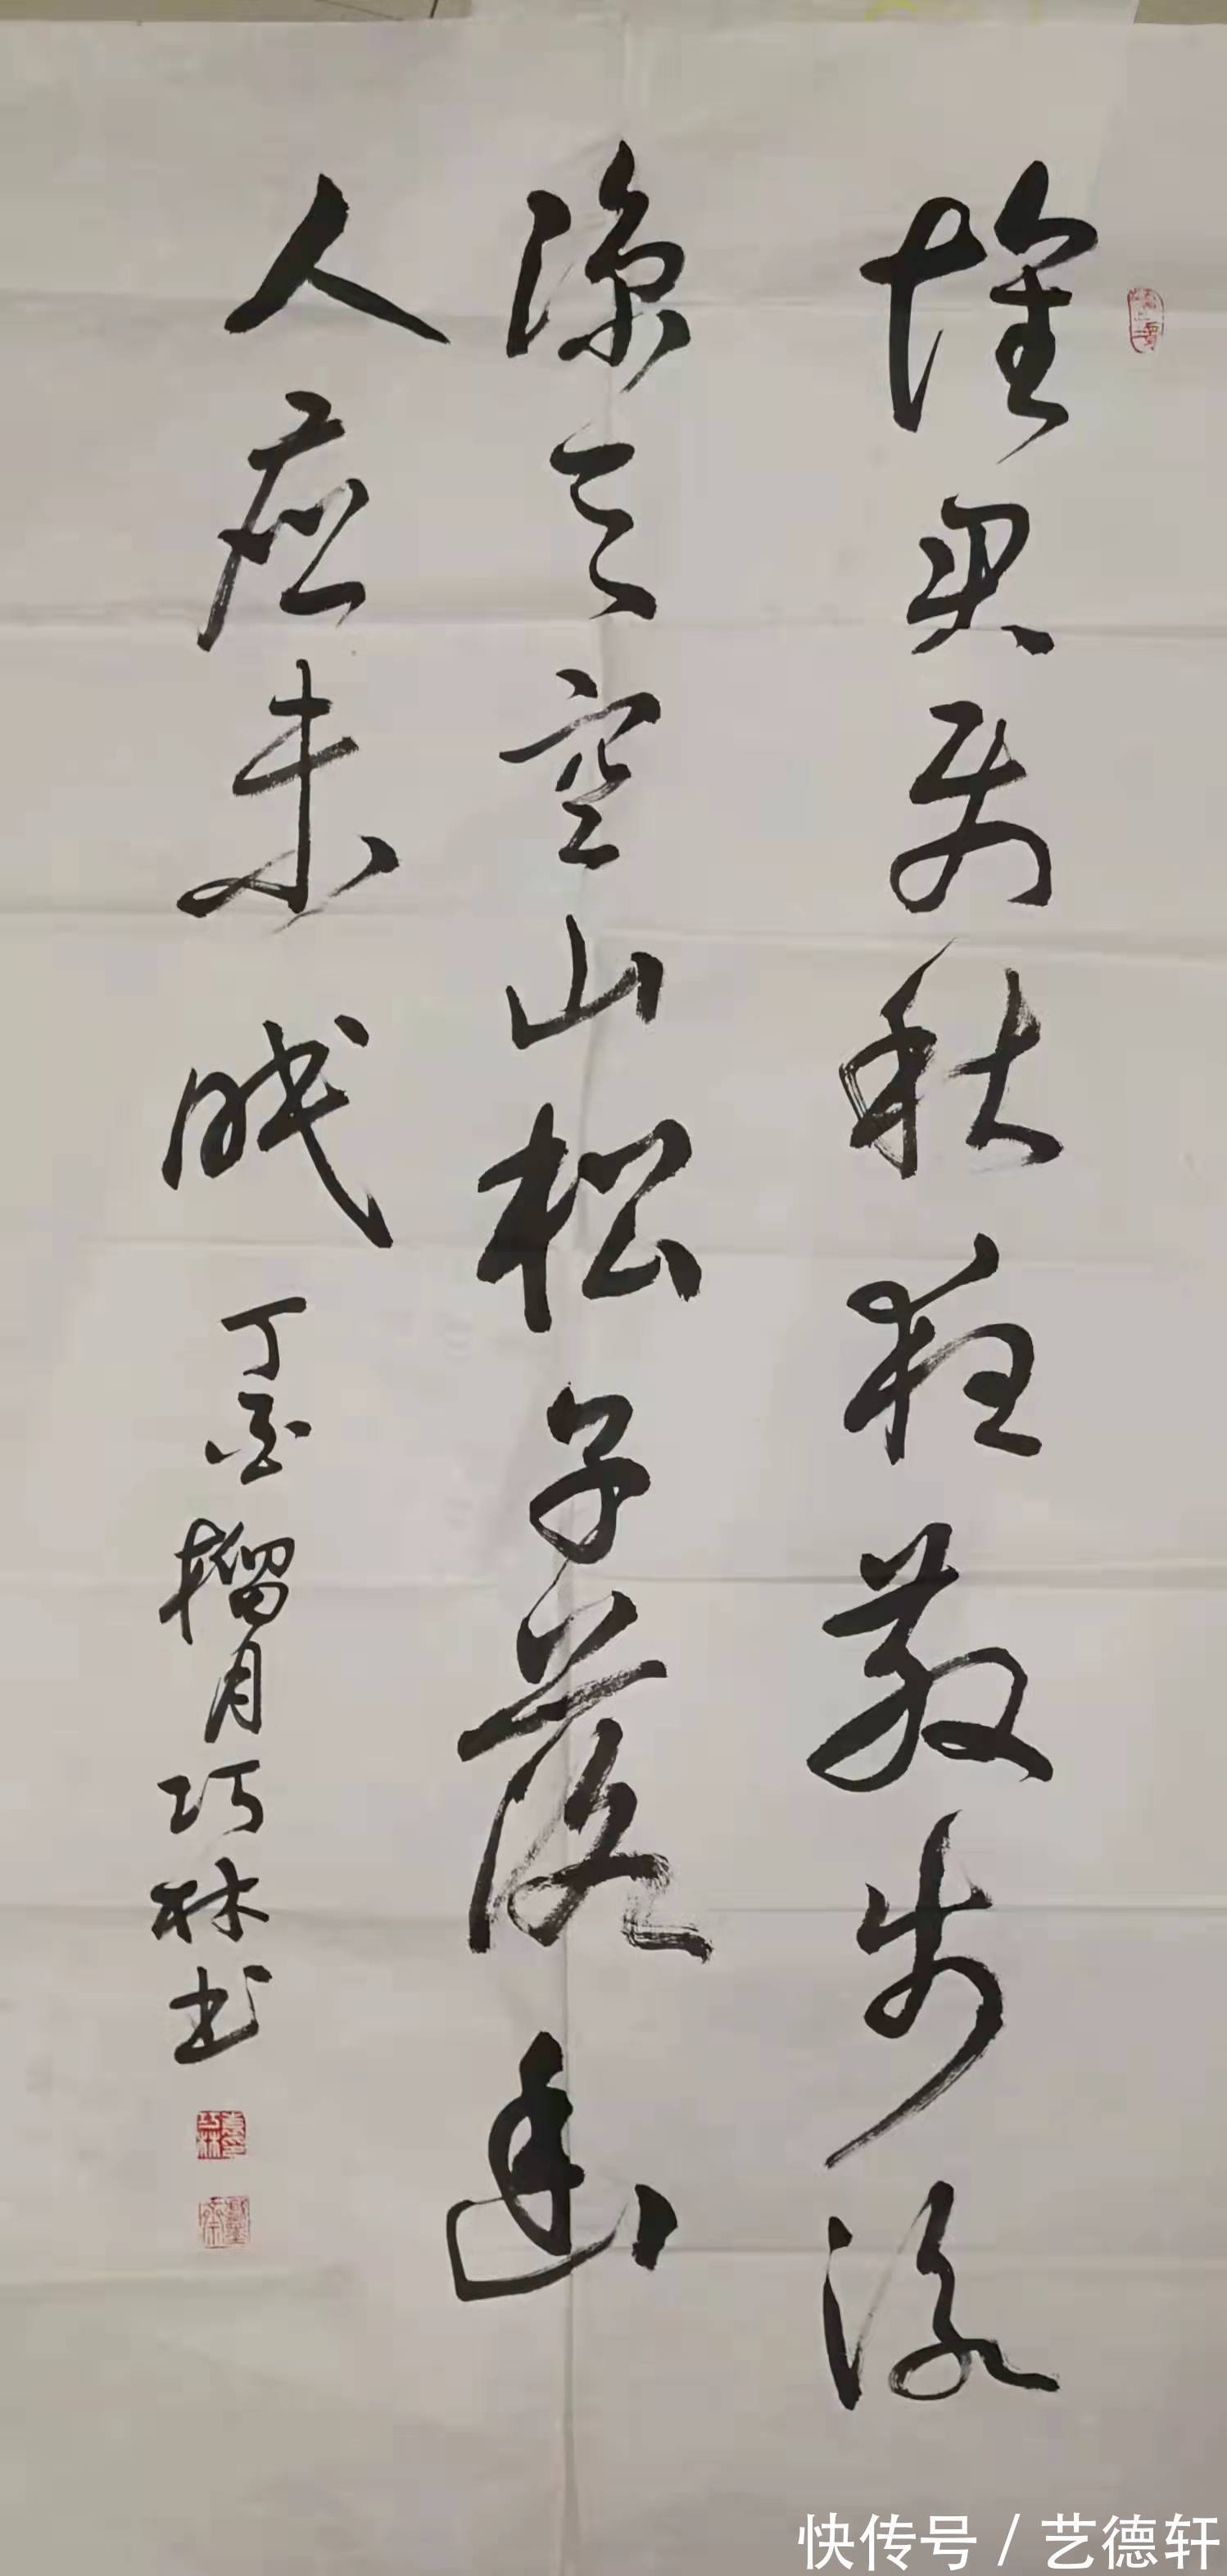 懷君属秋夜散步詠
凉天空山松子落幽
人应未眠 丁酉榴月巧林书
快传号 / 艺德轩